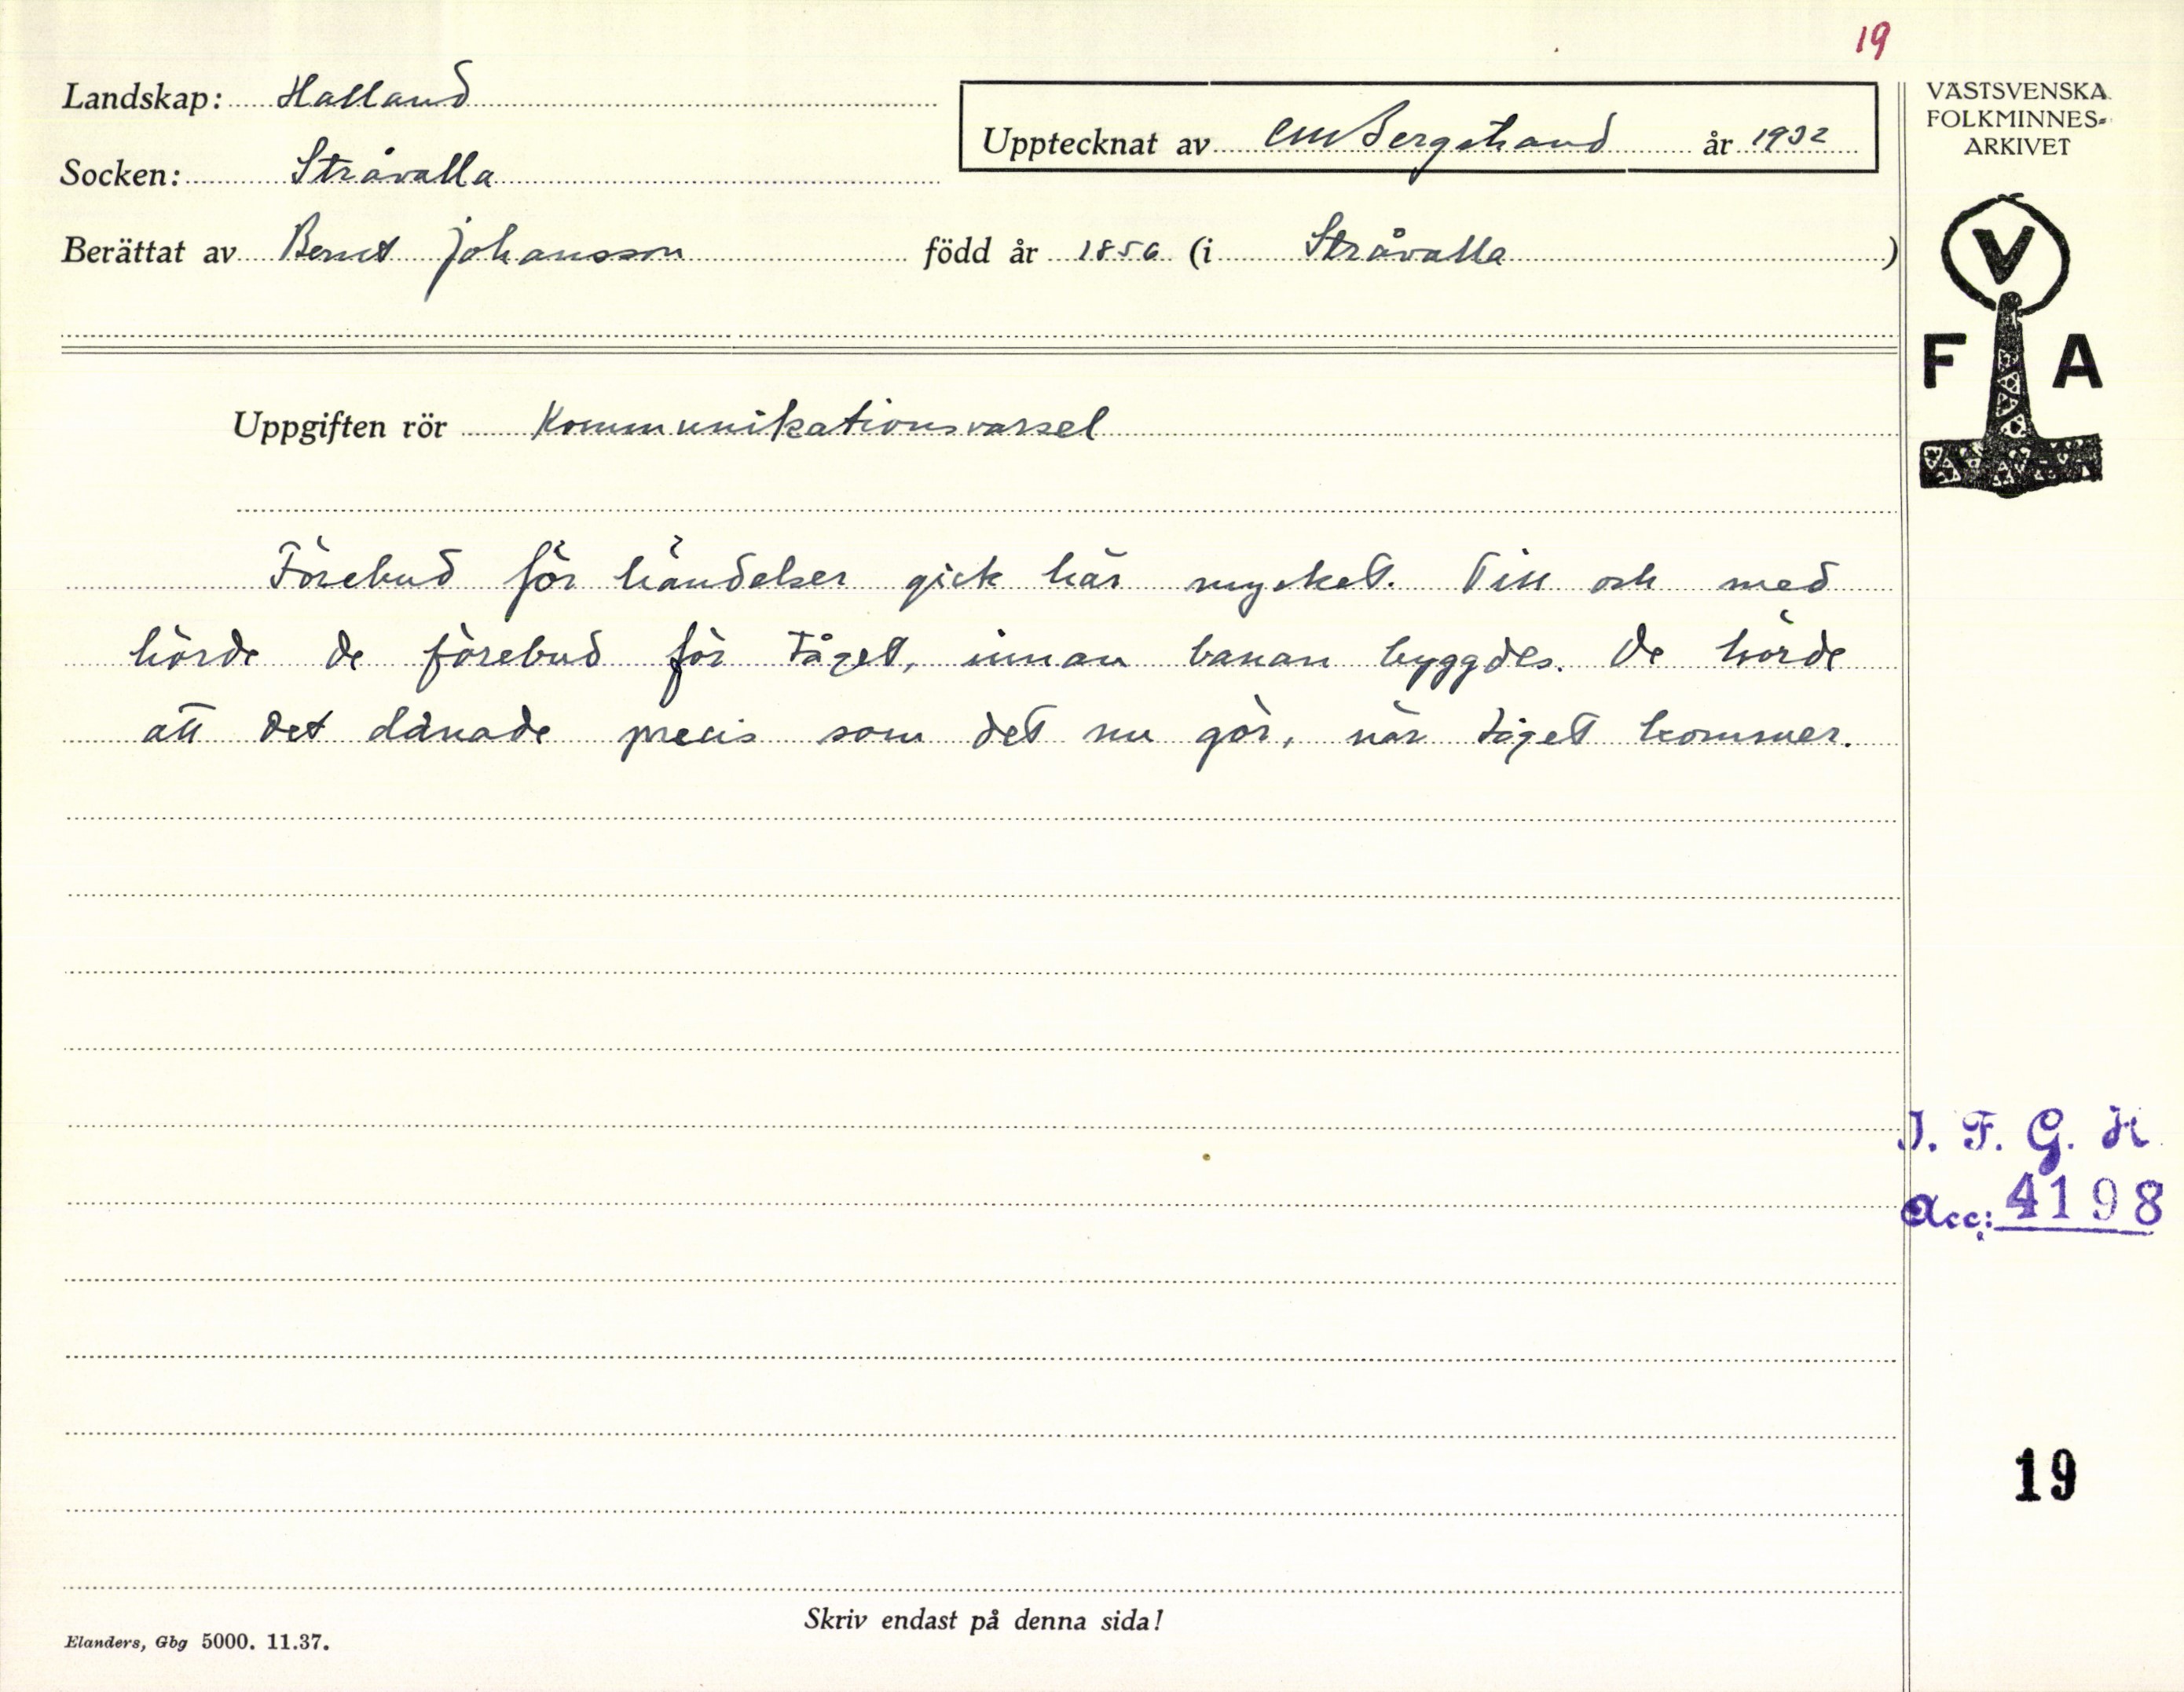 19
Landskap: Halland
Upptecknat av CM Bergstrand år 1932
Socken: Stråvalla
Berättat av Bernt Johansson född år 1856 (i Stråvalla)
VÄSTSVENSKA
FOLKMINNES-
ARKIVET
V
F A
Uppgiften rör Kommunikationsvarsel
Förebud för händelser gick här mycket. Till och med
hörde de förebud för tåget, innan banan byggdes. De hörde
att det dånade precis som det nu gör, när tåget kommer.
I. F. G. H
Acc: 4198
19
Skriv endast på denna sida!
Elanders, Gbg 5000. 11.37.